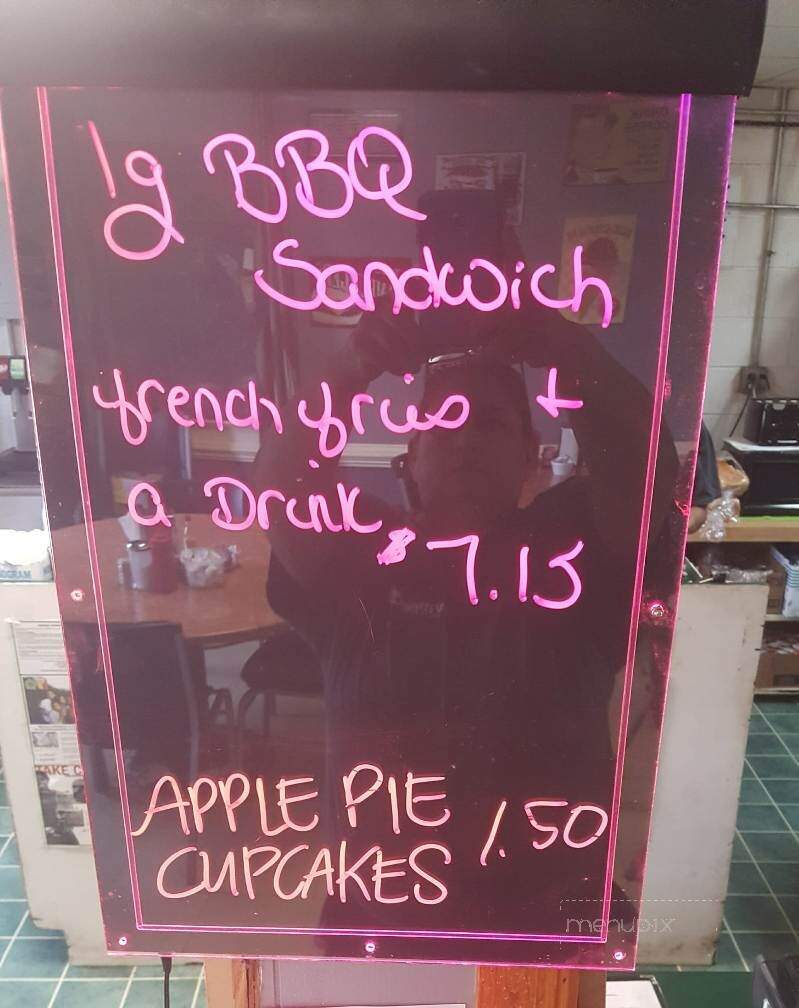 1g BBQ
Sandwich
french fries +
a Drink
$7.15
APPLE PIE
CUPCAKES 1.50
menupix